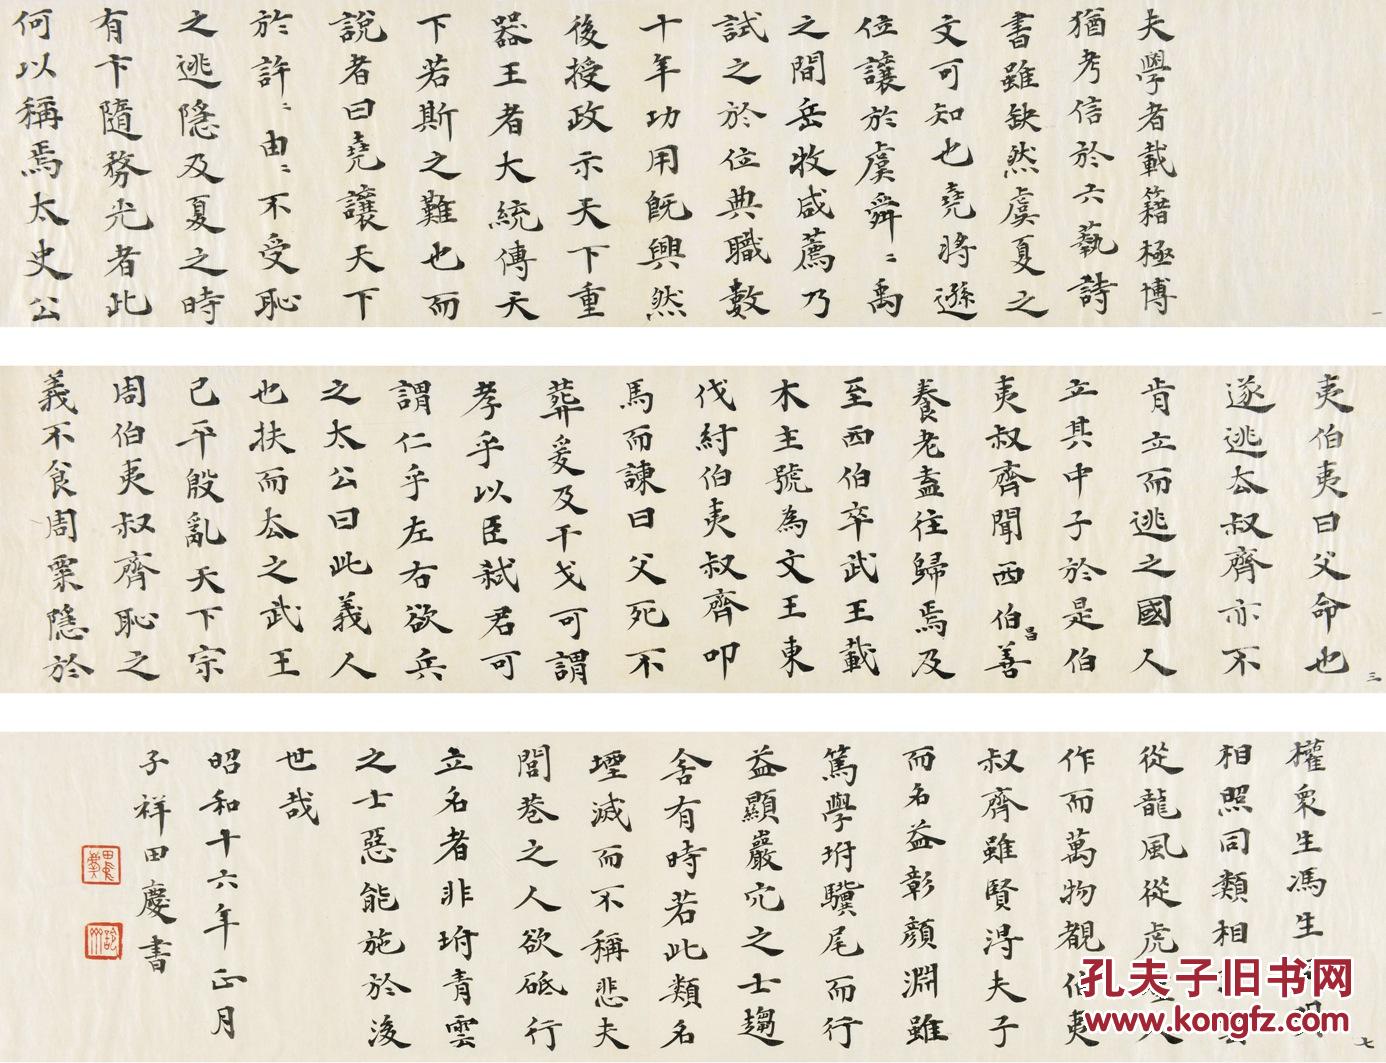 夫學者載籍極博
猶考信於六蓺詩
書雖缺然虞夏之
文可知也堯將遜
位讓於虞舜〻禹
之間岳牧咸薦乃
試之於位典職數
十年功用既興然
後授政示天下重
器王者大統傳天
下若斯之難也而
說者曰堯讓天下
於許〻由〻不受恥
之逃隱及夏之時
有卞隨務光者此
何以稱焉太史公
一
夷伯夷曰父命也
遂逃去叔齊亦不
肯立而逃之國人
立其中子於是伯
夷叔齊聞西伯昌善
養老盍往歸焉及
至西伯卒武王載
木主號為文王東
伐紂伯夷叔齊叩
馬而諫曰父死不
葬爰及干戈可謂
孝乎以臣弒君可
謂仁乎左右欲兵
之太公曰此義人
也扶而去之武王
已平殷亂天下宗
周伯夷叔齊恥之
義不食周粟隱於
三
權衆生馮生
相照同類相
從龍風從虎
作而萬物覩伯夷
叔齊雖賢得夫子
而名益彰顏淵雖
篤學坿驥尾而行
益顯巖穴之士趨
舍有時若此類名
堙滅而不稱悲夫
閭巷之人欲砥行
立名者非坿青雲
之士惡能施於後
世哉
昭和十六年正月
子祥田慶書
七
孔夫子旧书网
www.kongfz.com